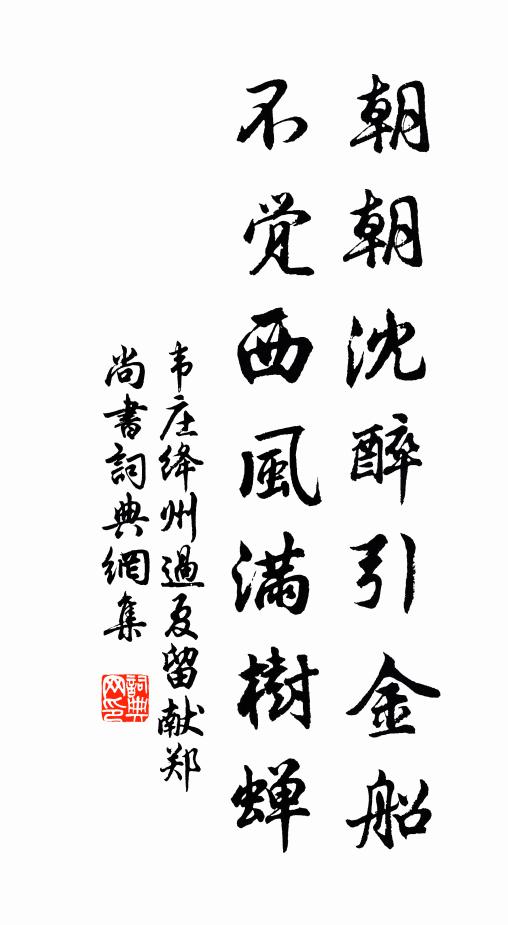 朝朝沈醉引金船
不觉西風满樹蝉
韦庄绛州過夏留献郑
尚書詞典網集
詞典
网印